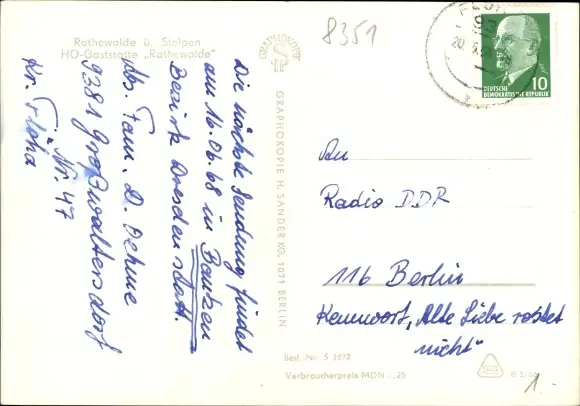 Rathewalde ü. Stolpen
HO-Gaststätte „Rathewalde"
8351
10
DEUTSCHE
DEMOKRATISCHE REPUBLIK
GRAPHOKOPIE
GRAPHOKOPIE H. SANDER KG, 1071 BERLIN
Die nächste Sendung findet
am 16.06.68 in Bautzen
Bezirk Dresden statt.
Abs. Fam. D. Oehme
9381 Großwaltersdorf
Nr. 47
Kr. Flöha
An
Radio DDR
116 Berlin
Kennwort „Alte Liebe rostet
nicht"
Best.-Nr. S 2672
Verbraucherpreis MDN -,25
1.